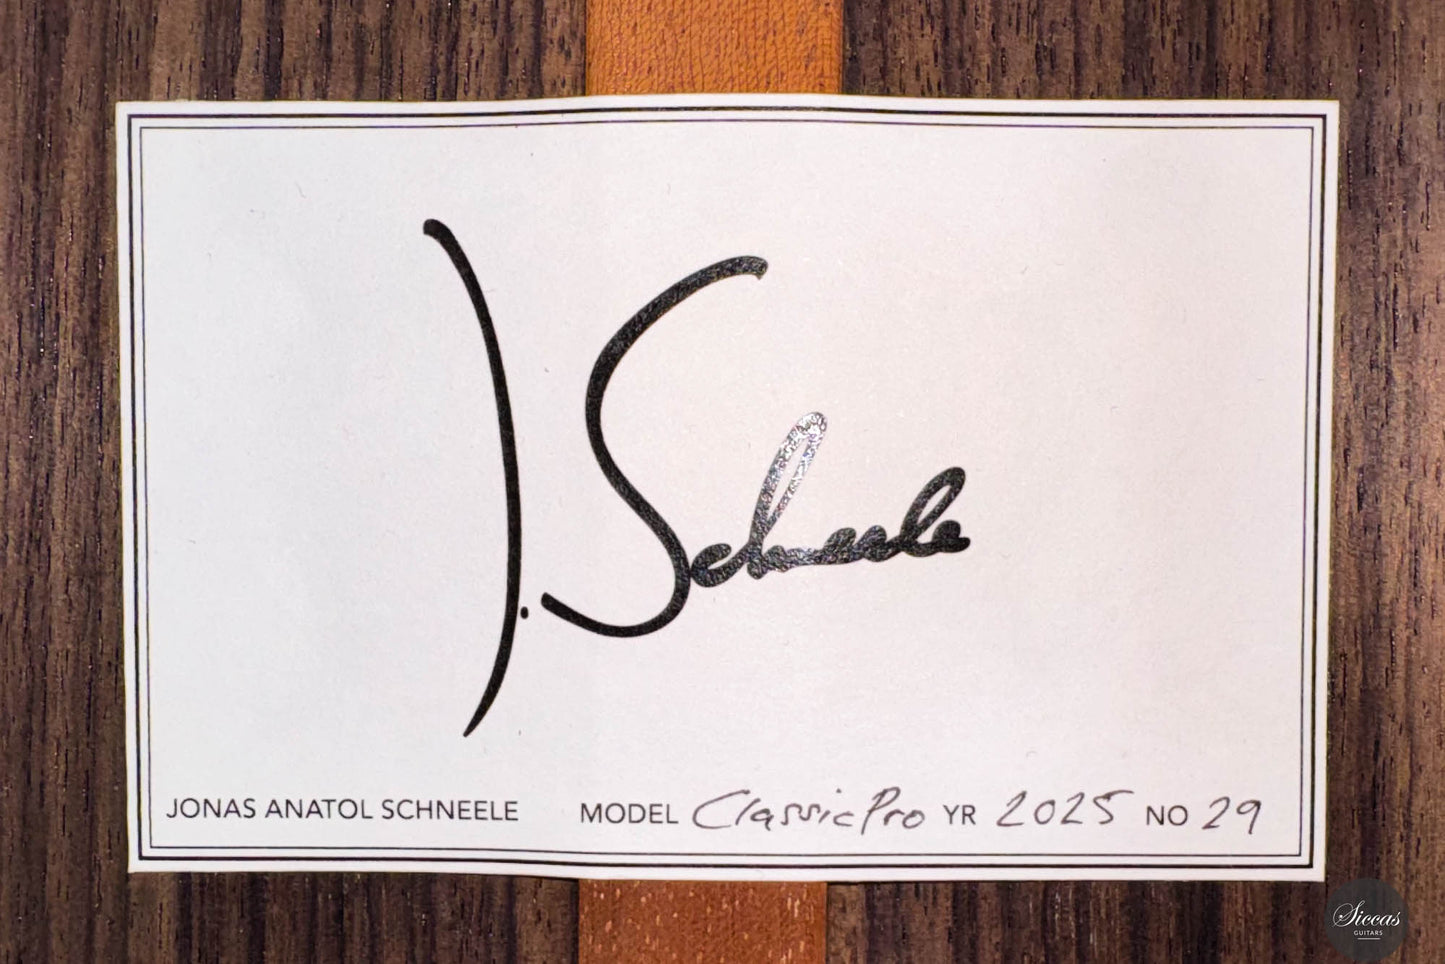 J. Schneele
JONAS ANATOL SCHNEELE MODEL ClassicPro YR 2025 NO 29
Siccas
GUITARS